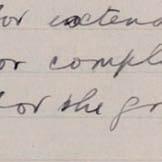 for extend
or compl
for the gr